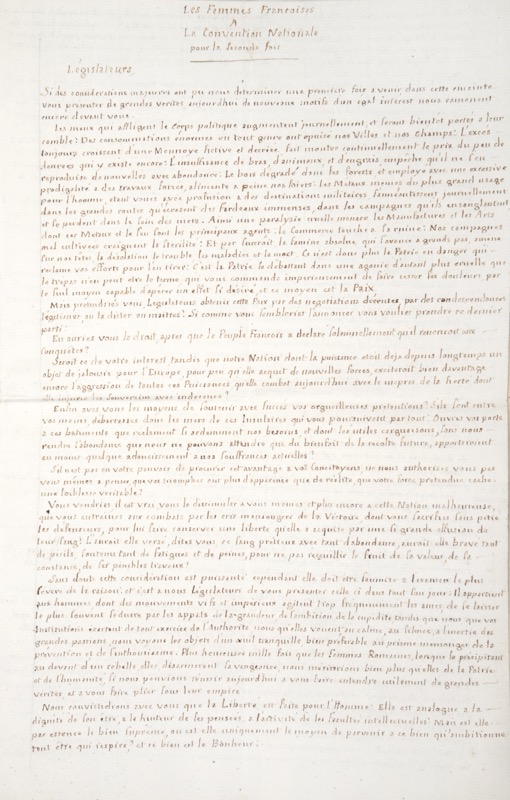 Les Femmes Francoises
A
La Convention Nationale
pour la Seconde fois
Législateurs,
Si des considerations majeures ont pu nous déterminer une premiere fois a venir dans cette enceinte
vous presenter de grandes verités aujourdhui de nouveaux motifs d'un egal interest nous ramenent
encore devant vous.
Les maux qui affligent le Corps politique augmentent journellement, et seront bientot portés a leur
comble: Des consommations énormes en tout genre ont epuisé nos Villes et nos Champs: L'excès
toujours croissant d'une Monnoye fictive et decriée, fait monter continuellement le prix du peu de
denrées qui y existe encore: L'insuffisance de bras, d'animaux, et d'engrais empêche qu'il ne s'en
reproduise de nouvelles avec abondance: Le bois degradé dans les forests et employé avec une excessive
prodigalité a des travaux forcés, alimente a peine nos foiers: les Metaux memes du plus grand usage
pour l'homme, etant voués avec profusion a des destinations militaires s'engloutissent journellement
dans les grandes routes qu'ecrasent des fardeaux immenses, dans les campagnes qu'ils ensanglantent
et se perdent dans le sein des mers: Ainsi une paralysie cruelle menace les Manufactures et les Arts
dont ces Metaux et le feu sont les principaux agents: le Commerce touche a sa ruine: Nos campagnes
mal cultivées craignent la stérilité: Et par surcroit la famine absolue, qui s'avance a grands pas, amene
sur nos têtes, la désolation le trouble les maladies et la mort. Ce n'est donc plus la Patrie en danger qui
reclame vos efforts pour l'en tirer: C'est la Patrie se debattant dans une agonie d'autant plus cruelle que
le trepas n'en peut etre le terme qui vous commande imperieusement de faire cesser les douleurs par
le seul moyen capable d'operer un effet si desiré, et ce moyen est la Paix
Mais pretendriés vous, Legislateurs obtenir cette Paix par des negotiations décentes, par des condescendances
legitimes, ou la dicter en maitres? Si comme vous sembleriés l'annoncer vous vouliés prendre ce dernier
parti:
En auriés vous le droit, apres que le Peuple Francois a declaré solemnellement qu'il renoncoit aux
conquêtes?
Seroit ce de votre interest tandis que notre Nation dont la puissance etoit deja depuis longtemps un
objet de jalousie pour l'Europe, pour peu qu'elle acquit de nouvelles forces, exciteroit bien davantage
encore l'aggression de toutes ces Puissances qu'elle combat aujourdhui avec le mepris de la fierté dont
elle injurie les Souverains avec indecence?
Enfin avés vous les moyens de soutenir avec succès vos orgueilleuses pretentions? S'ils sont entre
vos mains, debarrassés donc les mers de ces Insulaires qui vous poursuivent par tout: Ouvrés vos ports
a ces batiments que reclament si ardemment nos besoins, et dont les utiles cargaisons, sans nous
rendre l'abondance que nous ne pouvons attendre que du bienfait de la recolte future, apporteroient
au moins quelque adoucissement a nos souffrances actuelles?
S'il n'est pas en votre pouvoir de procurer cet avantage a vos Concitoyens, ne nous authorisés vous pas
vous mêmes a penser, que vos triomphes ont plus d'apparence que de réalité, que votre force pretendue cache
une foiblesse veritable?
Vous voudriés il est vray vous le dissimuler a vous mesmes et plus encore a cette Nation malheureuse,
que vous entrainés aux combats par les cris mensongers de la Victoire dont vous sacrifiés sans pitié
les defenseurs, pour lui faire conserver une liberté qu'elle a acquise par une si grande effusion de
leur sang! L'auroit elle versé, dites vous, ce sang precieux avec tant d'abondance, auroit elle bravé tant
de perils, soutenu tant de fatigues et de peines, pour ne pas recueillir le fruit de sa valeur, de sa
constance, de ses penibles travaux?
Sans doute cette consideration est puissante: cependant elle doit etre soumise a l'examen le plus
severe de la raison: et c'est a nous Legislateurs de vous presenter celle ci dans tout son jour: Il appartient
aux hommes dont des mouvements vifs et imperieux agitent trop frequemment les ames, de se laisser
le plus souvent seduire par les appats de la grandeur de l'ambition de la cupidité tandis que nous que vos
Institutions ecartent de tout exercice de l'authorité nous qu'elles vouent au calme, au silence, a l'inertie des
grandes passions, nous voyons les objets d'un œuil tranquille bien preferable au prisme mensonger de la
prevention et de l'enthousiasme. Plus heureuses mille fois que les Femmes Romaines, lorsque se precipitant
au devant d'un rebelle elles desarmerent sa vengeance nous meriterions bien plus qu'elles de la Patrie
et de l'humanité, si nous pouvions reussir aujourdhui a vous faire entendre utilement de grandes
verités, et a vous faire plier sous leur empire.
Nous conviendrons avec vous que la Liberté est faite pour l'Homme: Elle est analogue a la
dignité de son etre, a la hauteur de ses pensées, a l'activité de ses facultés intellectuelles: Mais est elle
par essence le bien suprême, ou est elle uniquement le moyen de parvenir a ce bien qu'ambitionne
tout être qui respire? et ce bien est le Bonheur: